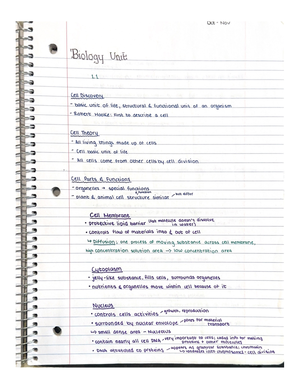 Oct - Nov
Biology Unit
1.1
Cell Discovery
• basic unit of life, structural & functional unit of an organism
• Robert Hooke: first to describe a cell
Cell Theory
• All living things made up of cells
• Cell basic unit of life
• All cells come from other cells by cell division
Cell Parts & Functions
• organelles → special functions
• plant & animal cell structure similar but differ
Cell Membrane
• protective lipid barrier (fat molecule doesn't dissolve in water)
• controls flow of materials into & out of cell
↳ Diffusion: the process of moving substance across cell membrane,
high concentration solution area → low concentration area
Cytoplasm
• jelly-like substance, fills cells, surrounds organelles
• nutrients & organelles move within cell because of it
Nucleus
• controls cells activities growth, reproduction
• surrounded by nuclear envelope pores for material transport
↳ small dense area - Nucleolus
• contain nearly all cell DNA very important to cells, codes info for making proteins + other molecules
• DNA attached to proteins
cell division